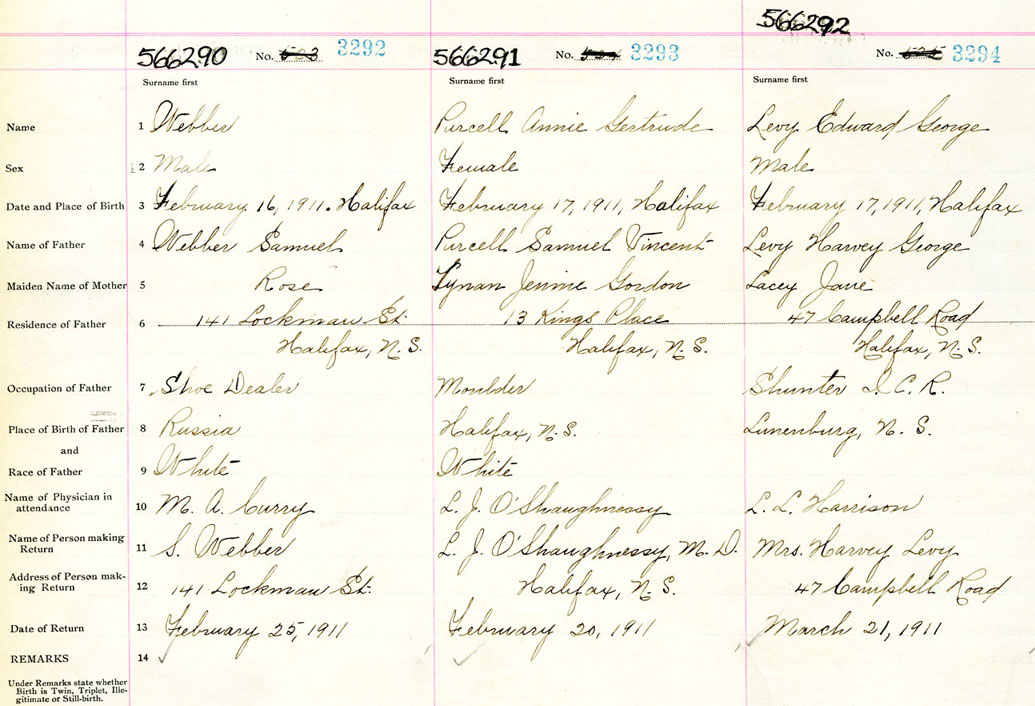 566292
566290 No. 3292 566291 No. 3293 No. 3294
Surname first Surname first Surname first
Name 1 Webber Purcell Annie Gertrude Levy Edward George
Sex 2 Male Female Male
Date and Place of Birth 3 February 16, 1911. Halifax February 17, 1911, Halifax February 17, 1911, Halifax
Name of Father 4 Webber Samuel Purcell Samuel Vincent Levy Harvey George
Maiden Name of Mother 5 Rose Tynan Jennie Gordon Lacey Jane
Residence of Father 6 141 Lockman St. 13 Kings Place 47 Campbell Road
Halifax, N.S. Halifax, N.S. Halifax, N.S.
Occupation of Father 7 Shoe Dealer Moulder Shunter I.C.R.
Place of Birth of Father 8 Russia Halifax, N.S. Lunenburg, N.S.
and
Race of Father 9 White White
Name of Physician in
attendance 10 M. A. Curry L. J. O'Shaughnessy L. L. Harrison
Name of Person making
Return 11 S. Webber L. J. O'Shaughnessy, M.D. Mrs. Harvey Levy
Address of Person mak-
ing Return 12 141 Lockman St. Halifax, N.S. 47 Campbell Road
Date of Return 13 February 25, 1911 February 20, 1911 March 21, 1911
REMARKS 14
Under Remarks state whether
Birth is Twin, Triplet, Ille-
gitimate or Still-birth.